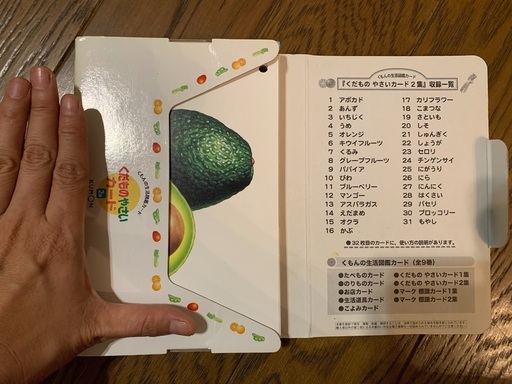 くもんの生活図鑑カード
くだもの やさい
カード
2集
KUMON
くもんの生活図鑑カード
『くだもの やさいカード2集』収録一覧
1 アボカド
2 あんず
3 いちじく
4 うめ
5 オレンジ
6 キウイフルーツ
7 くるみ
8 グレープフルーツ
9 パパイア
10 びわ
11 ブルーベリー
12 マンゴー
13 アスパラガス
14 えだまめ
15 オクラ
16 かぶ
17 カリフラワー
18 こまつな
19 さといも
20 しそ
21 しゅんぎく
22 しょうが
23 セロリ
24 チンゲンサイ
25 にがうり
26 にら
27 にんにく
28 はくさい
29 パセリ
30 ブロッコリー
31 もやし
●32枚目のカードに、使い方の説明があります。
くもんの生活図鑑カード(全9巻)
●たべものカード
●のりものカード
●お店カード
●生活道具カード
●こよみカード
●くだもの やさいカード1集
●くだもの やさいカード2集
●マーク 標識カード1集
●マーク 標識カード2集